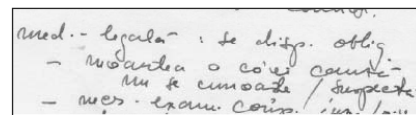 med. - legală : se disp. oblig
- moartea a cărei cauză
nu se cunoaște / suspectă
- nec. exam. corp.